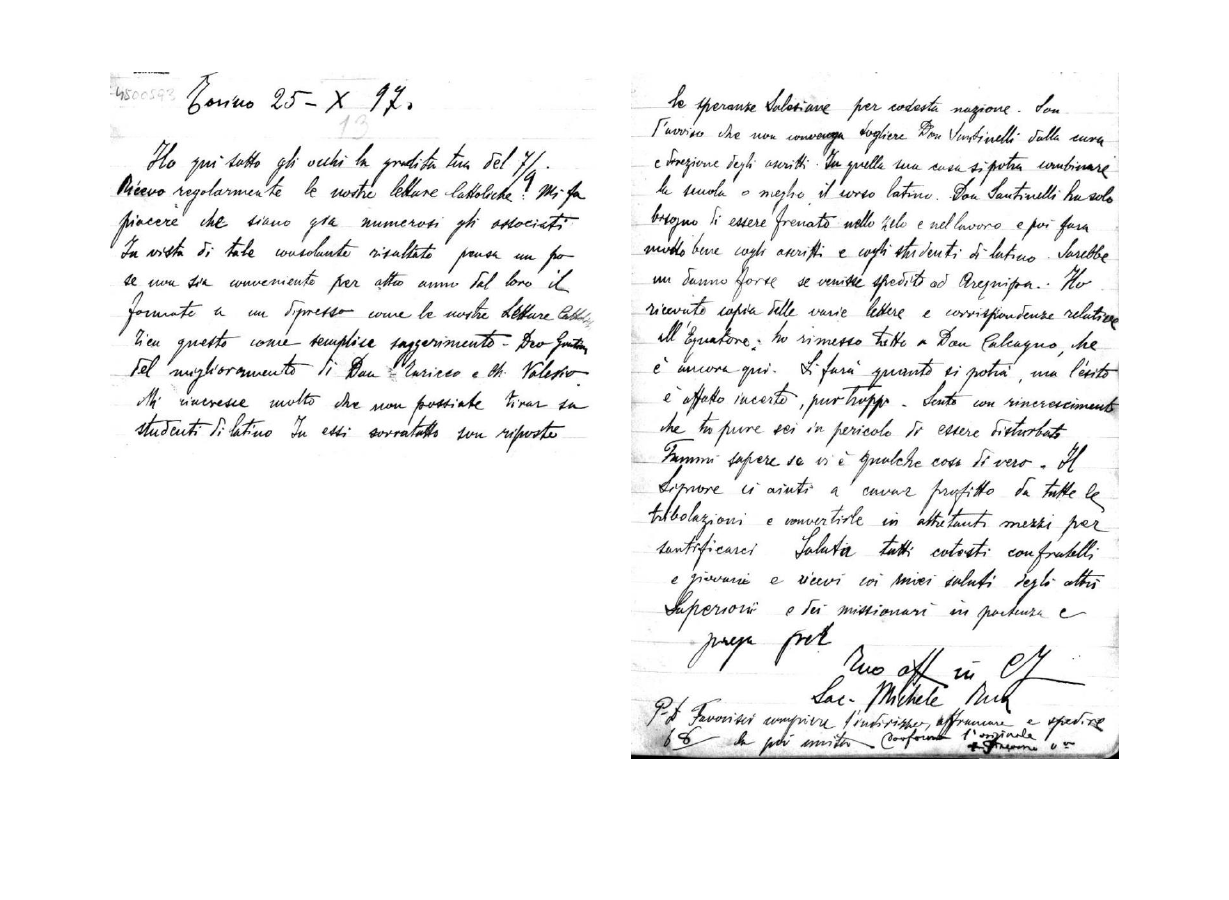 4500593
Torino 25 - X 97.
13
Ho qui sotto gli occhi la gradita tua del 7/9.
Ricevo regolarmente le nostre letture Cattoliche! Mi fa
piacere che siano già numerosi gli associati
In vista di tale consolante risultato pensa un po-
se non sia conveniente per altro anno dal loro il
formato a un dipresso come le nostre Letture
questo come semplice suggerimento - Deo
del miglioramento di Don Enrico e Ch. Valesio.
Mi rincresce molto che non possiate tirar su
studenti di latino In essi sovratutto son riposte
le speranze Salesiane per codesta nazione. Son
d'avviso che non convenga togliere Don Santinelli dalla cura
e direzione degli ascritti. In quella sua casa si potrà combinare
la scuola o meglio il corso latino. Don Santinelli ha solo
bisogno di essere frenato nello zelo e nel lavoro e poi farà
molto bene cogli ascritti e cogli studenti di latino. Sarebbe
un danno forse se venisse spedito ad Arequipa. Ho
ricevuto copia delle varie lettere e corrispondenze relative
all'Equatore; ho rimesso tutto a Don Calcagno, che
è ancora qui. Si farà quanto si potrà, ma l'esito
è affatto incerto, pur troppo. Sento con rincrescimento
che tu pure sei in pericolo di essere disturbato
Fammi sapere se vi è qualche cosa di vero. Il
Signore ci aiuti a cavar profitto da tutte le
tribolazioni e convertirle in altretanti mezzi per
santificarci Saluta tutti cotesti confratelli
e giovani e ricevi coi miei saluti degli altri
Superiori e dei missionari in partenza e
prega pel
Tuo aff in CJ
Sac. Michele Rua
P.S Favorisci compiere l'indirizzo, affrancare e spedire
la qui unita Conforme l'originale